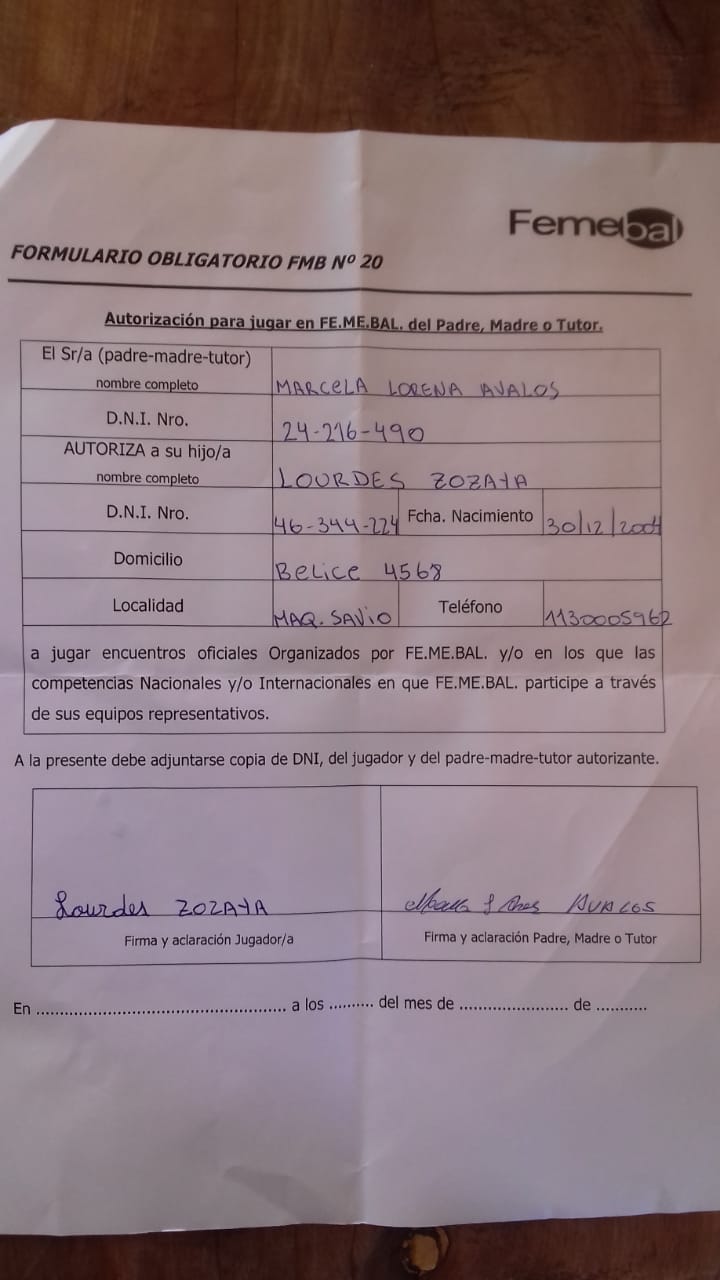 Femebal
FORMULARIO OBLIGATORIO FMB Nº 20
Autorización para jugar en FE.ME.BAL. del Padre, Madre o Tutor.
El Sr/a (padre-madre-tutor)
nombre completo MARCELA LORENA AVALOS
D.N.I. Nro. 24-216-490
AUTORIZA a su hijo/a
nombre completo LOURDES ZOZAYA
D.N.I. Nro. 46-344-224 Fcha. Nacimiento 30/12/2004
Domicilio Belice 4568
Localidad MAQ. SAViO Teléfono 1130005962
a jugar encuentros oficiales Organizados por FE.ME.BAL. y/o en los que las
competencias Nacionales y/o Internacionales en que FE.ME.BAL. participe a través
de sus equipos representativos.
A la presente debe adjuntarse copia de DNI, del jugador y del padre-madre-tutor autorizante.
Lourdes ZOZAYA AVALOS
Firma y aclaración Jugador/a Firma y aclaración Padre, Madre o Tutor
En ................................................ a los ......... del mes de ...................... de ...........